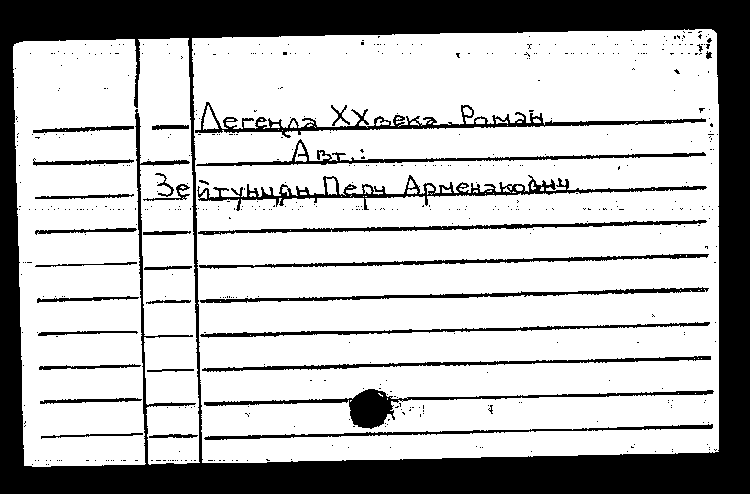 Легенда XX века. Роман.
Авт.:
Зейтунцян, Перч Арменакович.